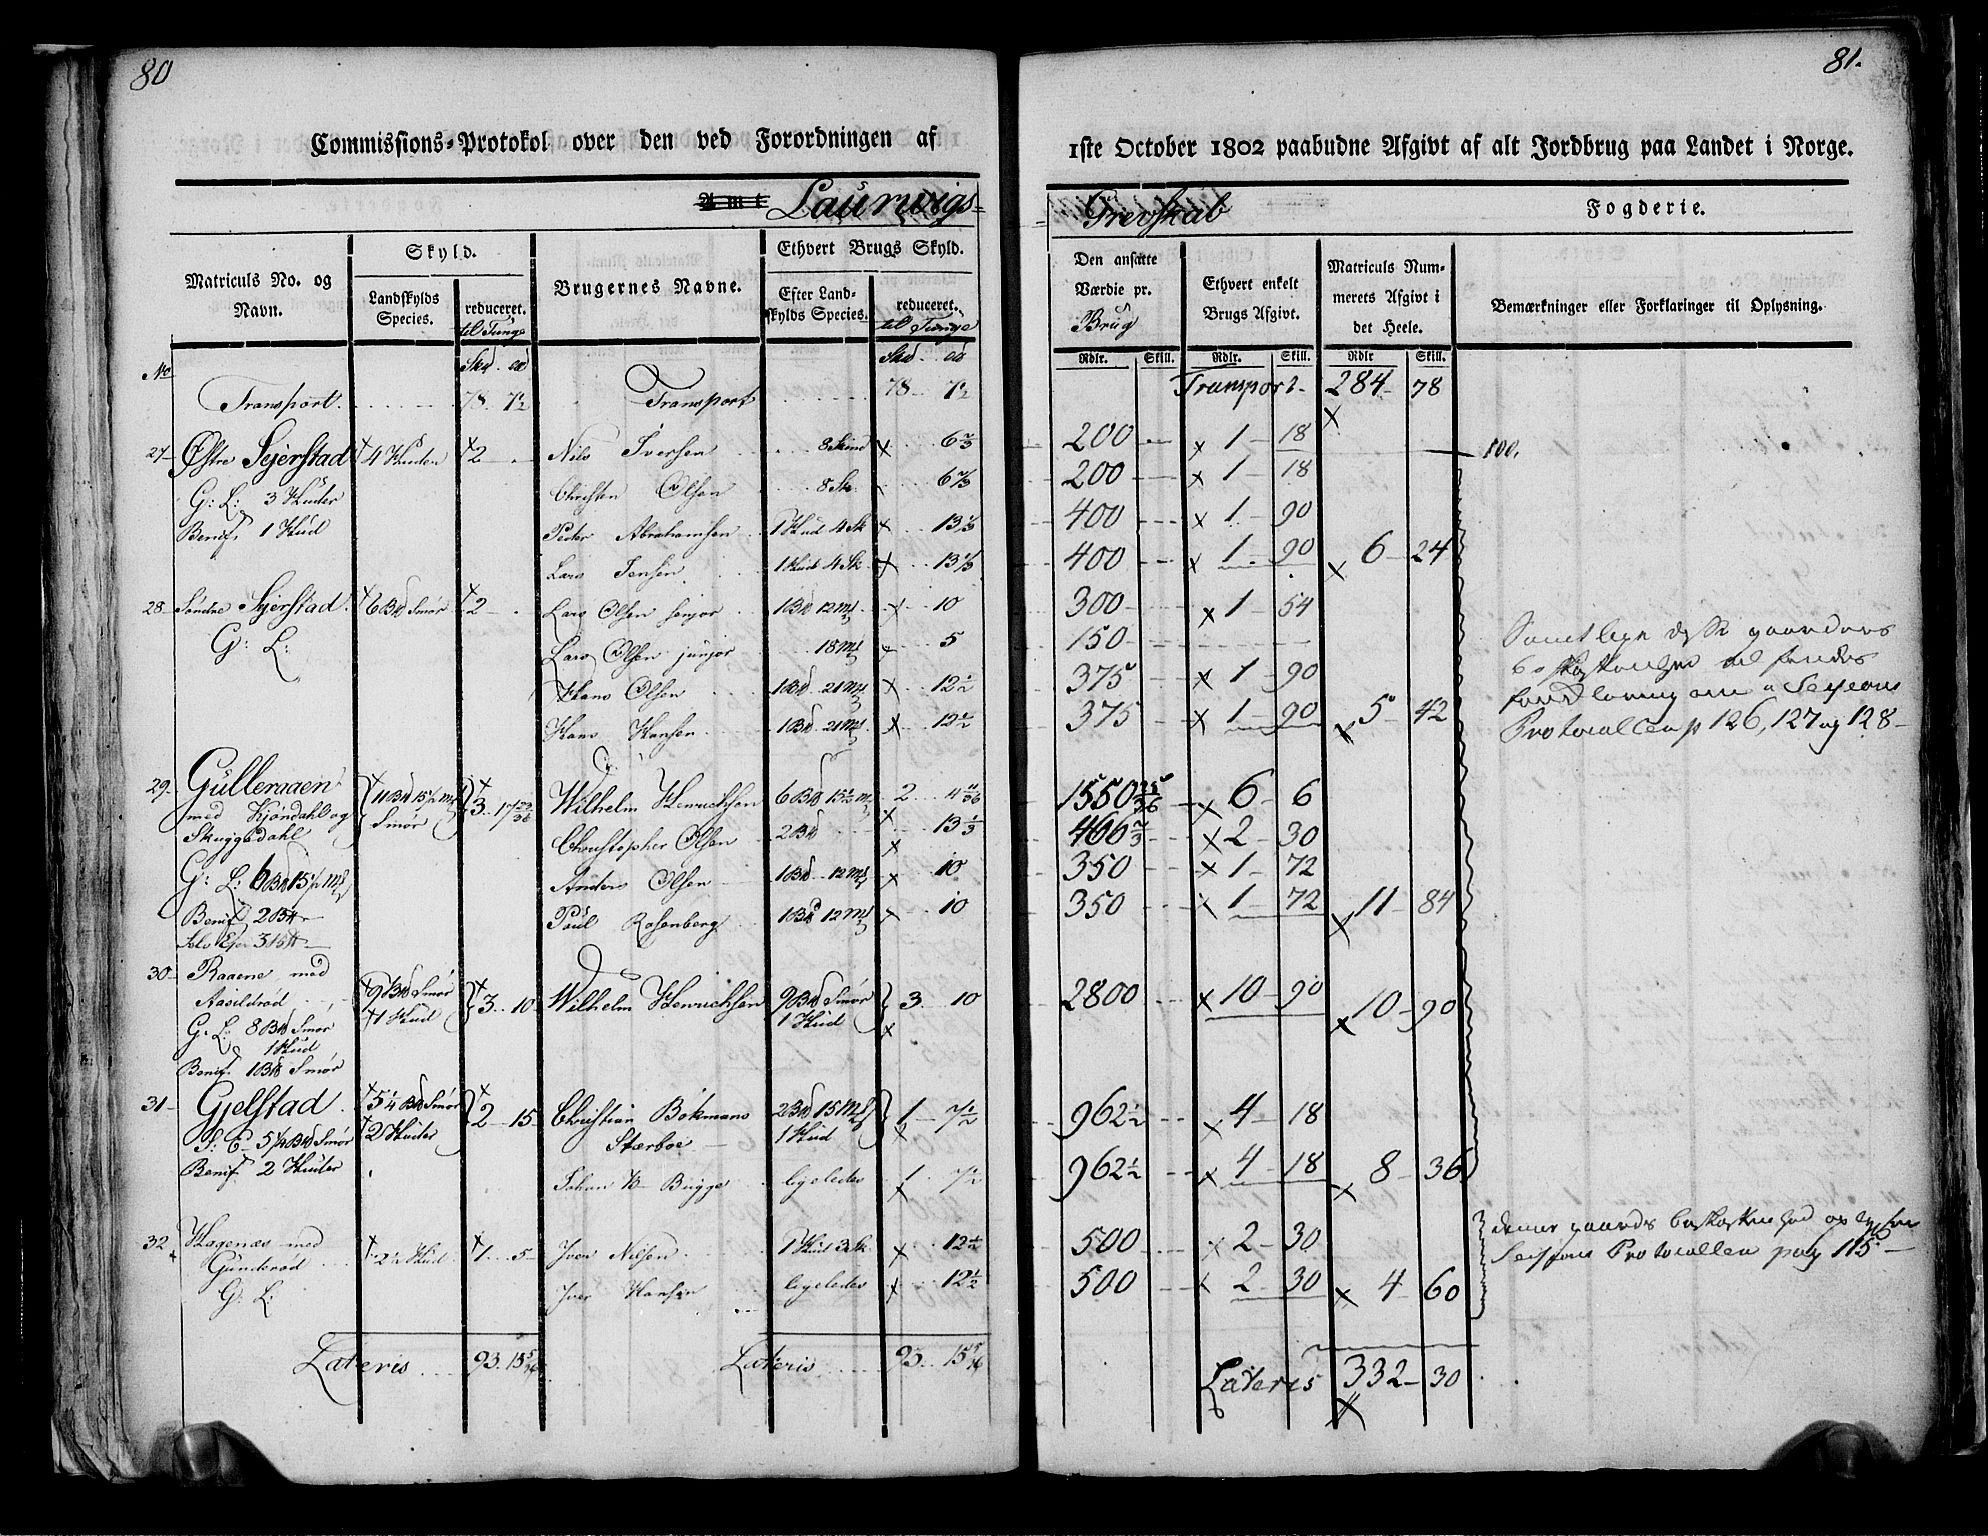 80
Commissions-Protokol over den ved Forordningen af
Amt Laurwigs-
Matriculs No. og Navn.
Skyld.
Landskylds Species.
reduceret. til Tunge
Brugernes Navne.
Ethvert Brugs Skyld.
Efter Landskylds Species.
reduceret. til Tunge
No Skd .. ad Skd .. ad
Transport. 78. 7½ Transport 78 7½
27 Østre Sejerstad 4 Huder 2 Nils Iversen 8 Skind 6⅔
G: L: 3 Huder Christen Olsen 8 Sk. 6⅔
Benif. 1 Hud Peder Abrahamsen 1 Hud 4 Sk 13⅓
Lars Jensen 1 Hud 4 Sk. 13⅓
28 Søndre Sejerstad 6 Bd Smør 2 Lars Olsen senjor 1 Bd 12 Mk 10
G: L: Lars Olsen junjor 18 Mk 5
Hans Olsen 1 Bd 21 Mk 12½
Hans Hansen 1 Bd 21 Mk 12½
29 Gulleraaen 11 Bd 15½ Mk 3. 17 Wilhelm Henrichsen 6 Bd 15½ M 2
med Kjøndahl og Smør
Skuggedahl Christopher Olsen 2 Bd 13⅓
G: L: 6 Bd 15½ Mk Anders Olsen 1 Bd 12 Mk 10
Benif. 2 Bd Paul Rosenberg 1 Bd 12 Mk 10
30 Raaene med 9 Bd Smør 3 10 Wilhelm Henrichsen 9 Bd Smør 3. 10
Aasildrød 1 Hud 1 Hud
G. L: 8 Bd Smør
1 Hud
Benif. 1 Bd Smør
31 Gjelstad 5¼ Bd Smør 2 15 Christian Bokmans 2 Bd 15 Mk 1 7½
2 Huder Stærboe 1 Hud
Benif 2 Huder Johan H Bugge ligeledes 1 7½
32 Hagenæs med 2½ Hud 1 5 Iver Nilsen 1 Hud 3 Sk 12½
Gunderød
G: L: Iver Hansen ligeledes 12½
Lateris 93. 15 Lateris 93. 15
81.
1ste October 1802 paabudne Afgivt af alt Jordbrug paa Landet i Norge.
Grevskab Fogderie.
Den ansatte Værdie pr. Brug
Ethvert enkelt Brugs Afgivt.
Matriculs Nummerets Afgivt i det Heele.
Bemærkninger eller Forklaringer til Oplysning.
Rdlr. Skill. Rdlr. Skill. Rdlr Skill.
Transport 284 78
200 1 18 100.
200 1 18
400 1 90
400 1 90 6 24
300 1 54
150
375 1 90
375 1 90 5 42
Samtlige disse gaarders
Protocollen p 126, 127 og 128
1550 6 6
466⅔ 2 30
350 1 72
350 1 72 11 84
2800 10 90 10 90
962½ 4 18
962½ 4 18 8 36
500 2 30
500 2 30 4 60
denne gaards beskaffenhed oplyser
Sessions Protocollen pag 115
Lateris 332 30